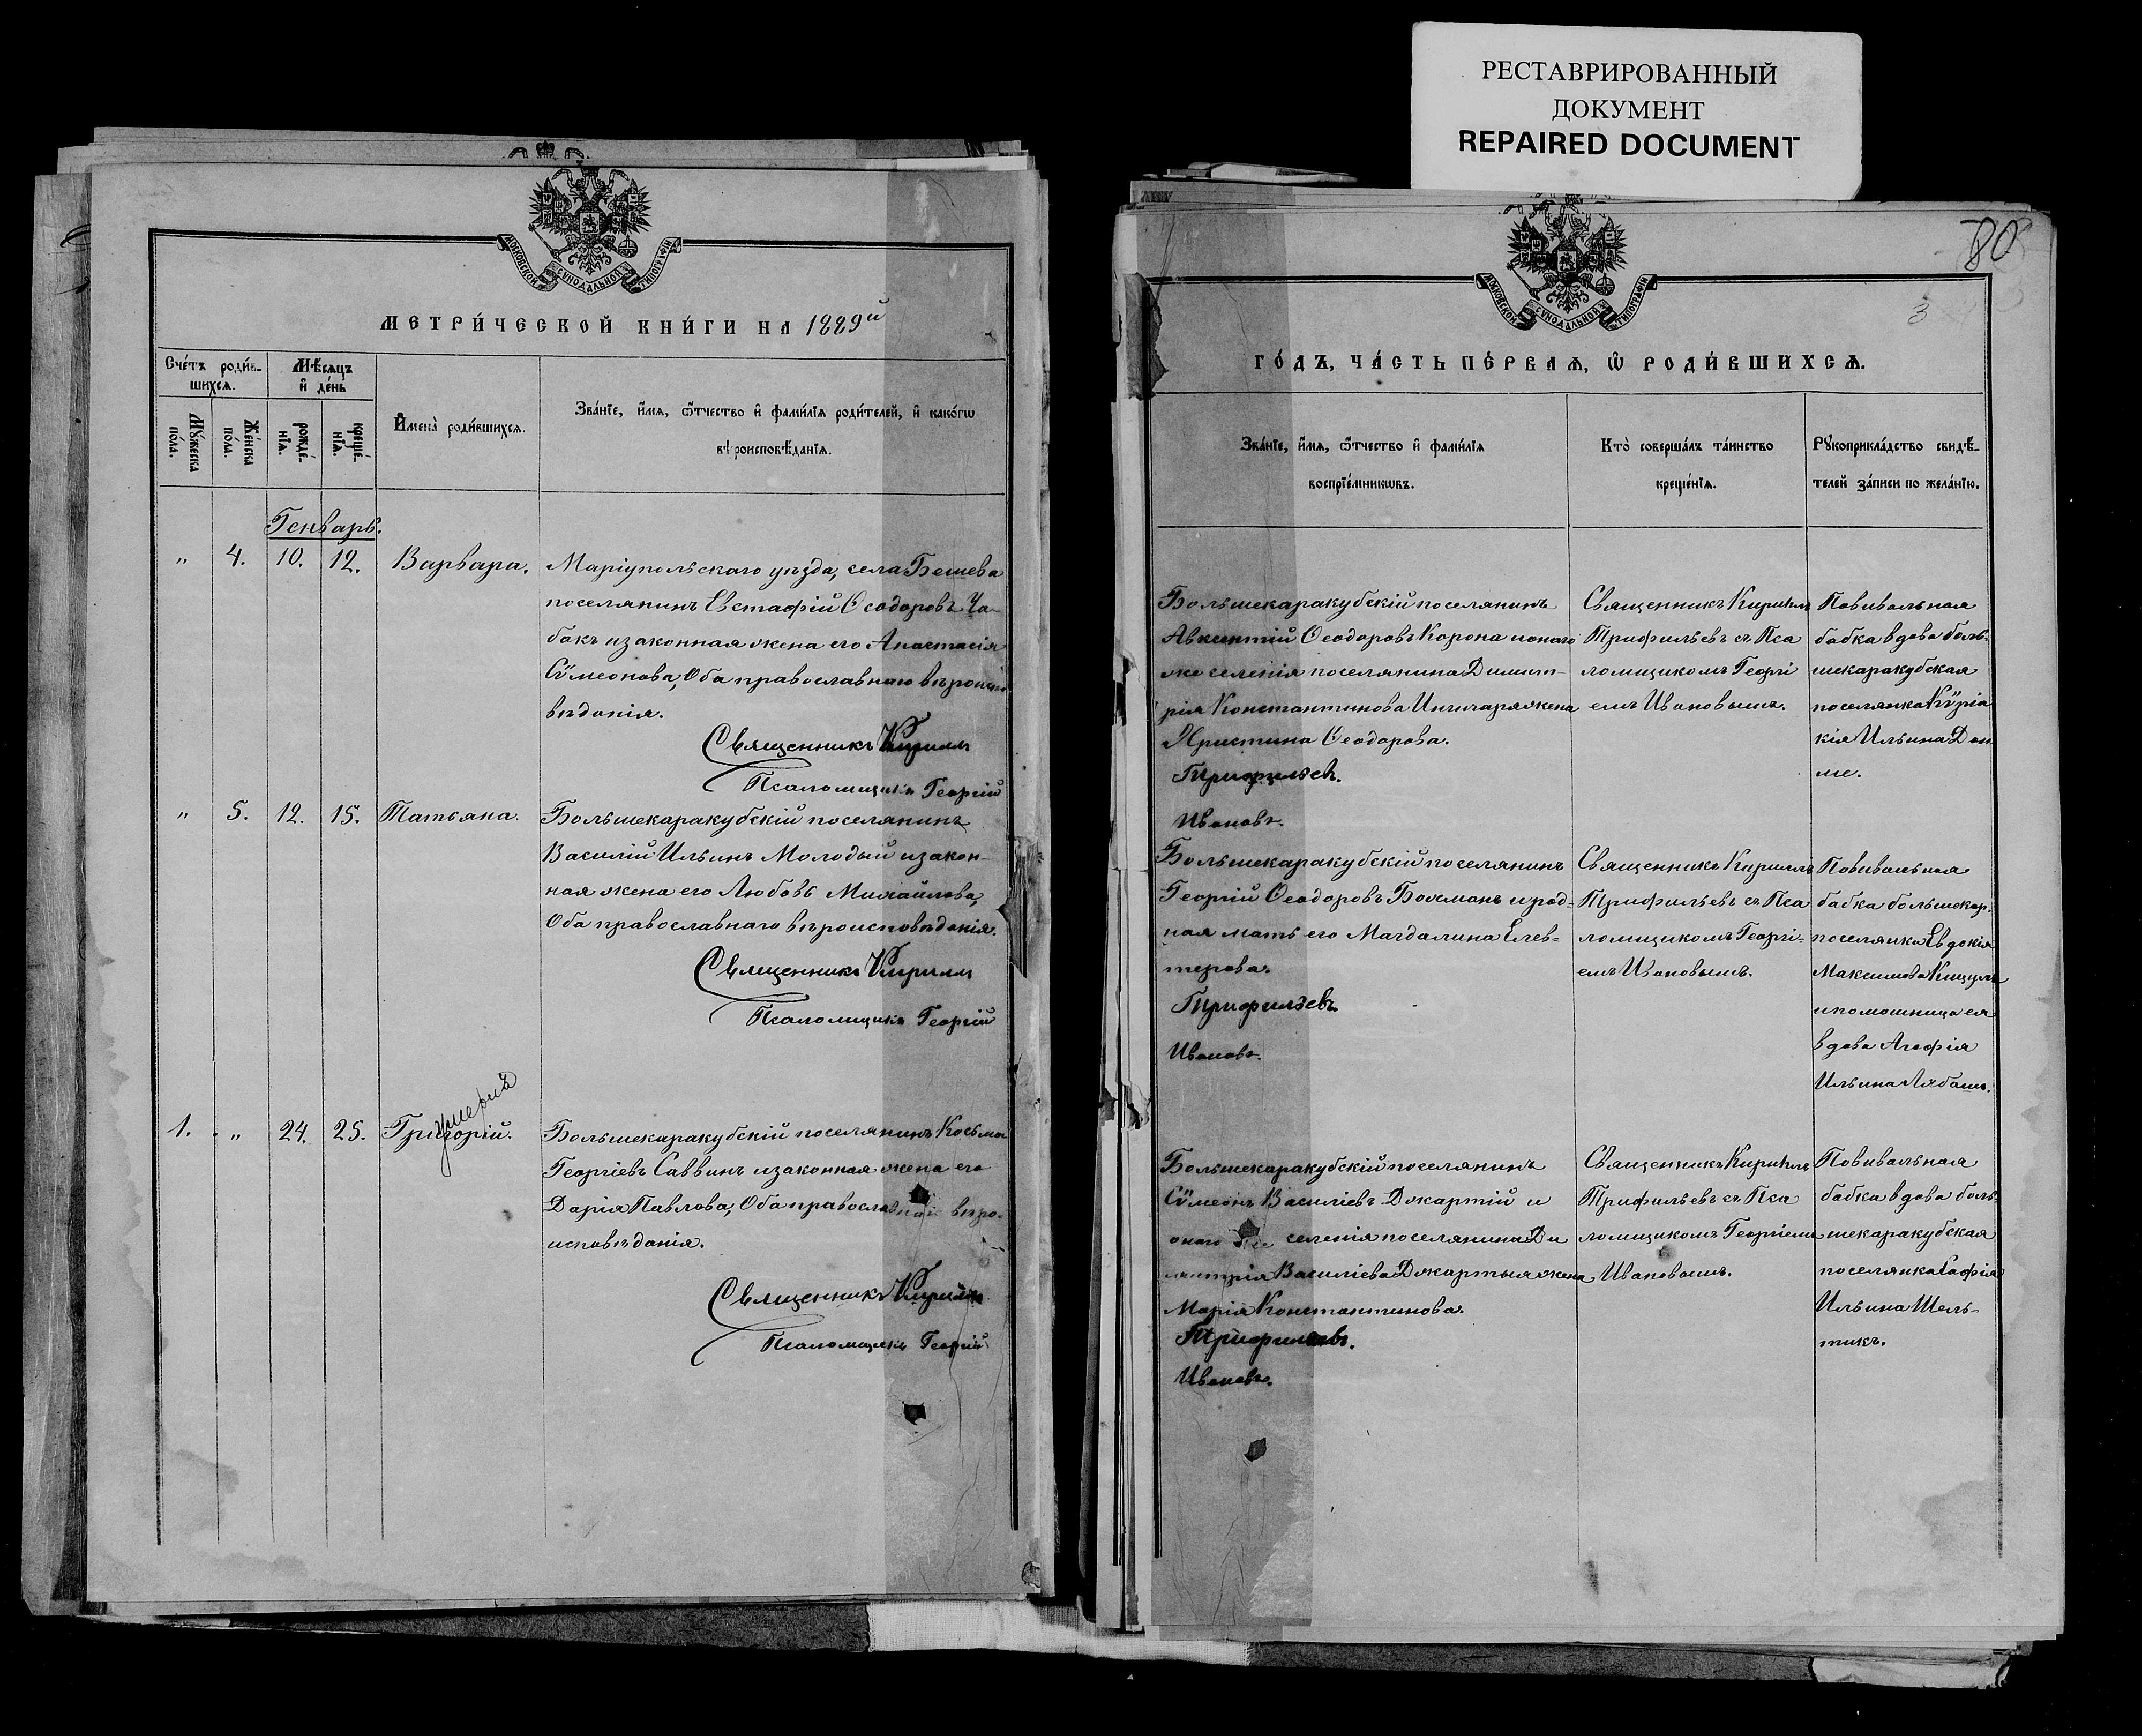 РЕСТАВРИРОВАННЫЙ
ДОКУМЕНТ
REPAIRED DOCUMENT
МОСКОВСКОЙ СѴНОДАЛЬНОЙ ТИПОГРАФІИ
МЕТРИ́ЧЕСКОЙ КНИ́ГИ НА 1889й
Сче́тъ роди́в-
шихсѧ.
Мѣ́сѧцъ
и҆ де́нь
Мꙋ́жеска
по́ла.
Же́нска
по́ла.
рожде́-
нїѧ.
креще́-
нїѧ.
И҆мена̀ роди́вшихсѧ.
Зва́нїе, и҆́мѧ, ѻ҆́тчество и҆ фами́лїѧ роди́телей, и҆ како́гѡ
вѣроисповѣ́данїѧ.
Генварь.
" 4. 10. 12. Варвара.
Маріупольскаго уѣзда, села Бешева
поселянинъ Евстафій Ѳеодоровъ Ча-
бакъ и законная жена его Анастасія
Сѵмеонова, Оба православнаго вѣроиспо
вѣданія.
Священникъ Кирилл
Псаломщикъ Георгій
" 5. 12. 15. Татьяна.
Большекаракубскій поселянинъ
Василій Ильинъ Молодый и закон-
ная жена его Любовь Михайлова,
Оба православнаго вѣроисповѣданія.
Священникъ Кирилл
Псаломщикъ Георгій
умерий
1. " 24. 25. Григорій.
Большекаракубскій поселянинъ Косьма
Георгіевъ Саввинъ и законная жена его
Дарія Павлова, Оба православнаго вѣро-
исповѣданія.
Священникъ Кирилл
Псаломщикъ Георгій
80
3
МОСКОВСКОЙ СѴНОДАЛЬНОЙ ТИПОГРАФІИ
ГО́ДЪ, ЧА́СТЬ ПЕ́РВАѦ, Ѡ҆ РОДИ́ВШИХСѦ.
Зва́нїе, и҆́мѧ, ѻ҆́тчество и҆ фами́лїѧ
воспрїе́мникѡвъ.
Кто̀ соверша́лъ та́инство
креще́нїѧ.
Рꙋкоприкла́дство свидѣ́-
телей за́писи по жела́нїю.
Большекаракубскій поселянинъ
Авксентій Ѳеодоровъ Корона и онаго
же селенія поселянина Димит-
рія Константинова жена
Христина Ѳеодорова.
Трифильевъ.
Ивановъ.
Священникъ Кириллъ
Трифильевъ съ Пса
ломщикомъ Георгі
емъ Ивановымъ.
Повивальная
бабка вдова боль-
шекаракубская
поселянка Кѵріа
кія Ильина Дон
ме.
Большекаракубскій поселянинъ
Георгій Ѳеодоровъ Бохманъ и род-
ная мать его Магдалина Елев-
терова.
Трифильевъ
Ивановъ.
Священникъ Кириллъ
Трифильевъ съ Пса
ломщикомъ Георгі-
емъ Ивановымъ.
Повивальная
бабка большекар.
поселянка Евдокія
Максимова
и помощница ея
вдова Агафія
Ильина
Большекаракубскій поселянинъ
Сѵмеонъ Василіевъ Джартій и
онаго же селенія поселянина Ди
митрія Василіева Джартыя жена
Марія Константинова.
Трифильевъ.
Ивановъ.
Священникъ Кириллъ
Трифильевъ съ Пса
ломщикомъ Георгіемъ
Ивановымъ.
Повивальная
бабка вдова боль-
шекаракубская
поселянка Софія
Ильина Шель-
тикъ.